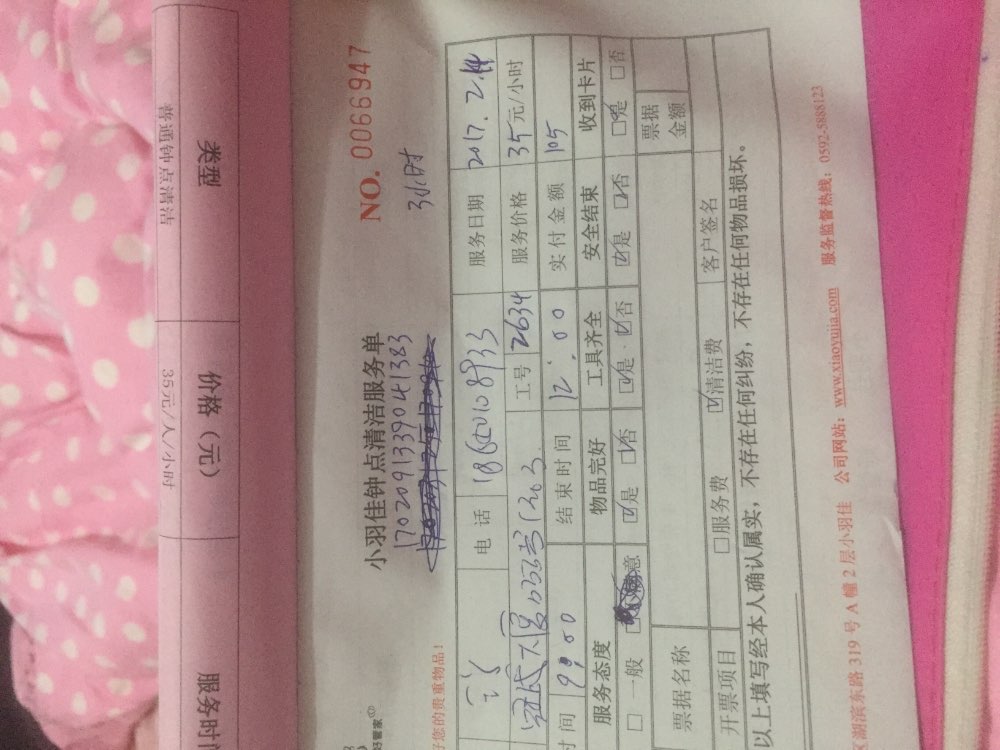 类型 价格（元） 服务时
普通钟点清洁 35元/人/小时
NO. 0066947
小羽佳钟点清洁服务单
1702091339041383
3小时
好管家
好您的贵重物品！
电话 服务日期 2017.2.14
工号 2634 服务价格 35元/小时
时间 9:00 结束时间 12:00 实付金额 105
服务态度 物品完好 工具齐全 安全结束 收到卡片
□一般 意 ☑是 ☑否 ☑是 ☑否 ☑是 ☑否 ☑是 □否
票据名称 票据金额
开票项目 □服务费 ☑清洁费 客户签名
以上填写经本人确认属实，不存在任何纠纷，不存在任何物品损坏。
区湖滨东路 319 号 A 幢 2 层小羽佳 公司网站：www.xiaoyujia.com 服务监督热线：0592-5888123